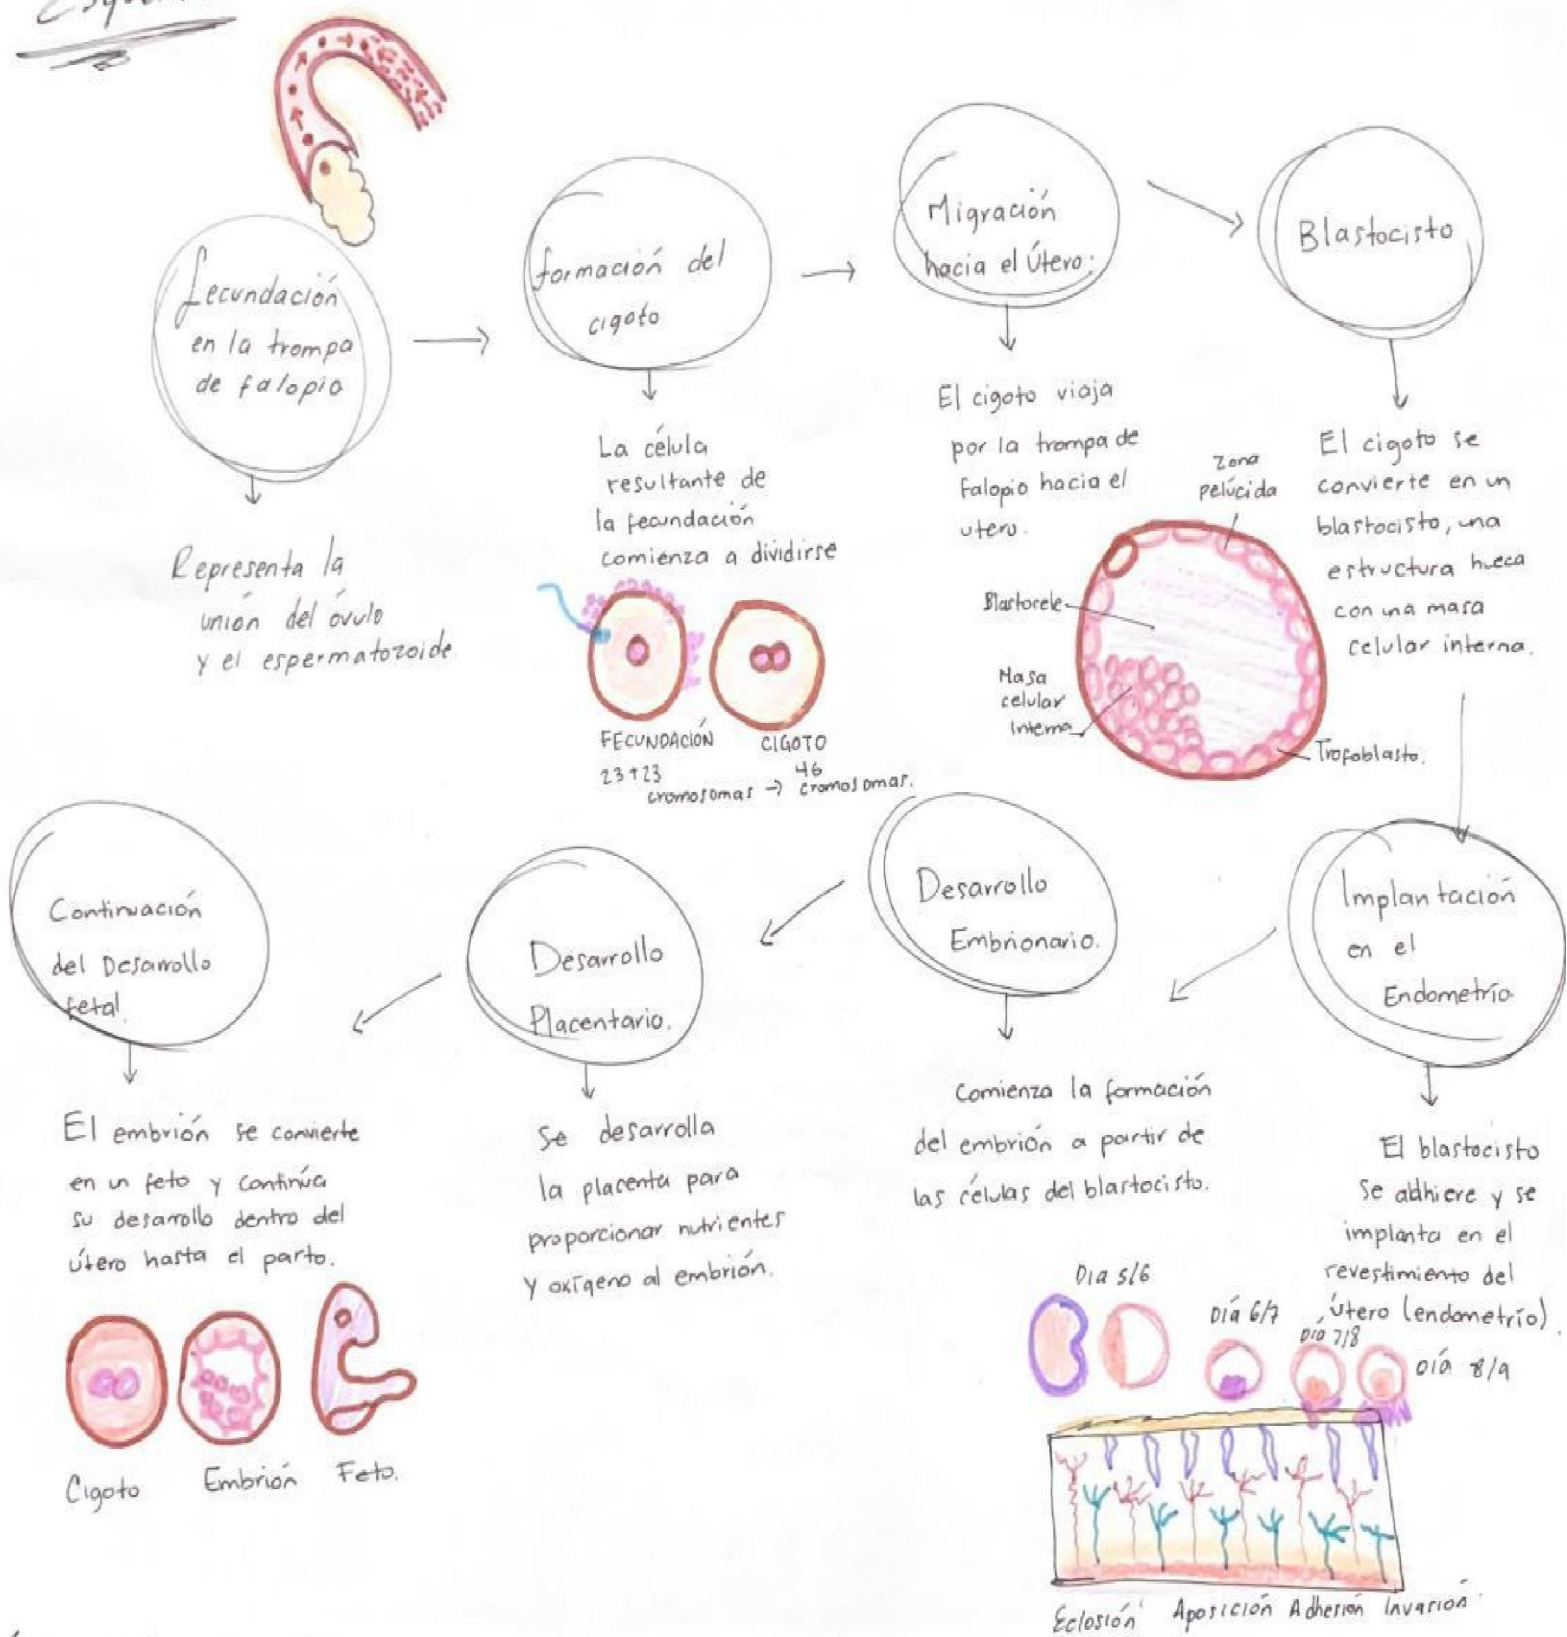 fecundación
en la trompa
de falopio
Representa la
unión del óvulo
y el espermatozoide.
formación del
cigoto
La célula
resultante de
la fecundación
comienza a dividirse
FECUNDACIÓN
23+23
cromosomas →
CIGOTO
46
cromosomas.
Migración
hacia el Útero:
El cigoto viaja
por la trompa de
falopio hacia el
utero.
Blastocisto
El cigoto se
convierte en un
blastocisto, una
estructura hueca
con una masa
celular interna.
Zona
pelúcida
Blastocele
Masa
celular
Interna
Trofoblasto.
Implantación
en el
Endometrio
El blastocisto
se adhiere y se
implanta en el
revestimiento del
útero (endometrío).
Día 5/6
Día 6/7
Día 7/8
Día 8/9
Eclosión Aposición Adhesión Invasión
Desarrollo
Embrionario.
Comienza la formación
del embrión a partir de
las células del blastocisto.
Desarrollo
Placentario.
Se desarrolla
la placenta para
proporcionar nutrientes
y oxígeno al embrión.
Continuación
del Desarrollo
fetal.
El embrión se convierte
en un feto y continúa
su desarrollo dentro del
útero hasta el parto.
Cigoto Embrión Feto.